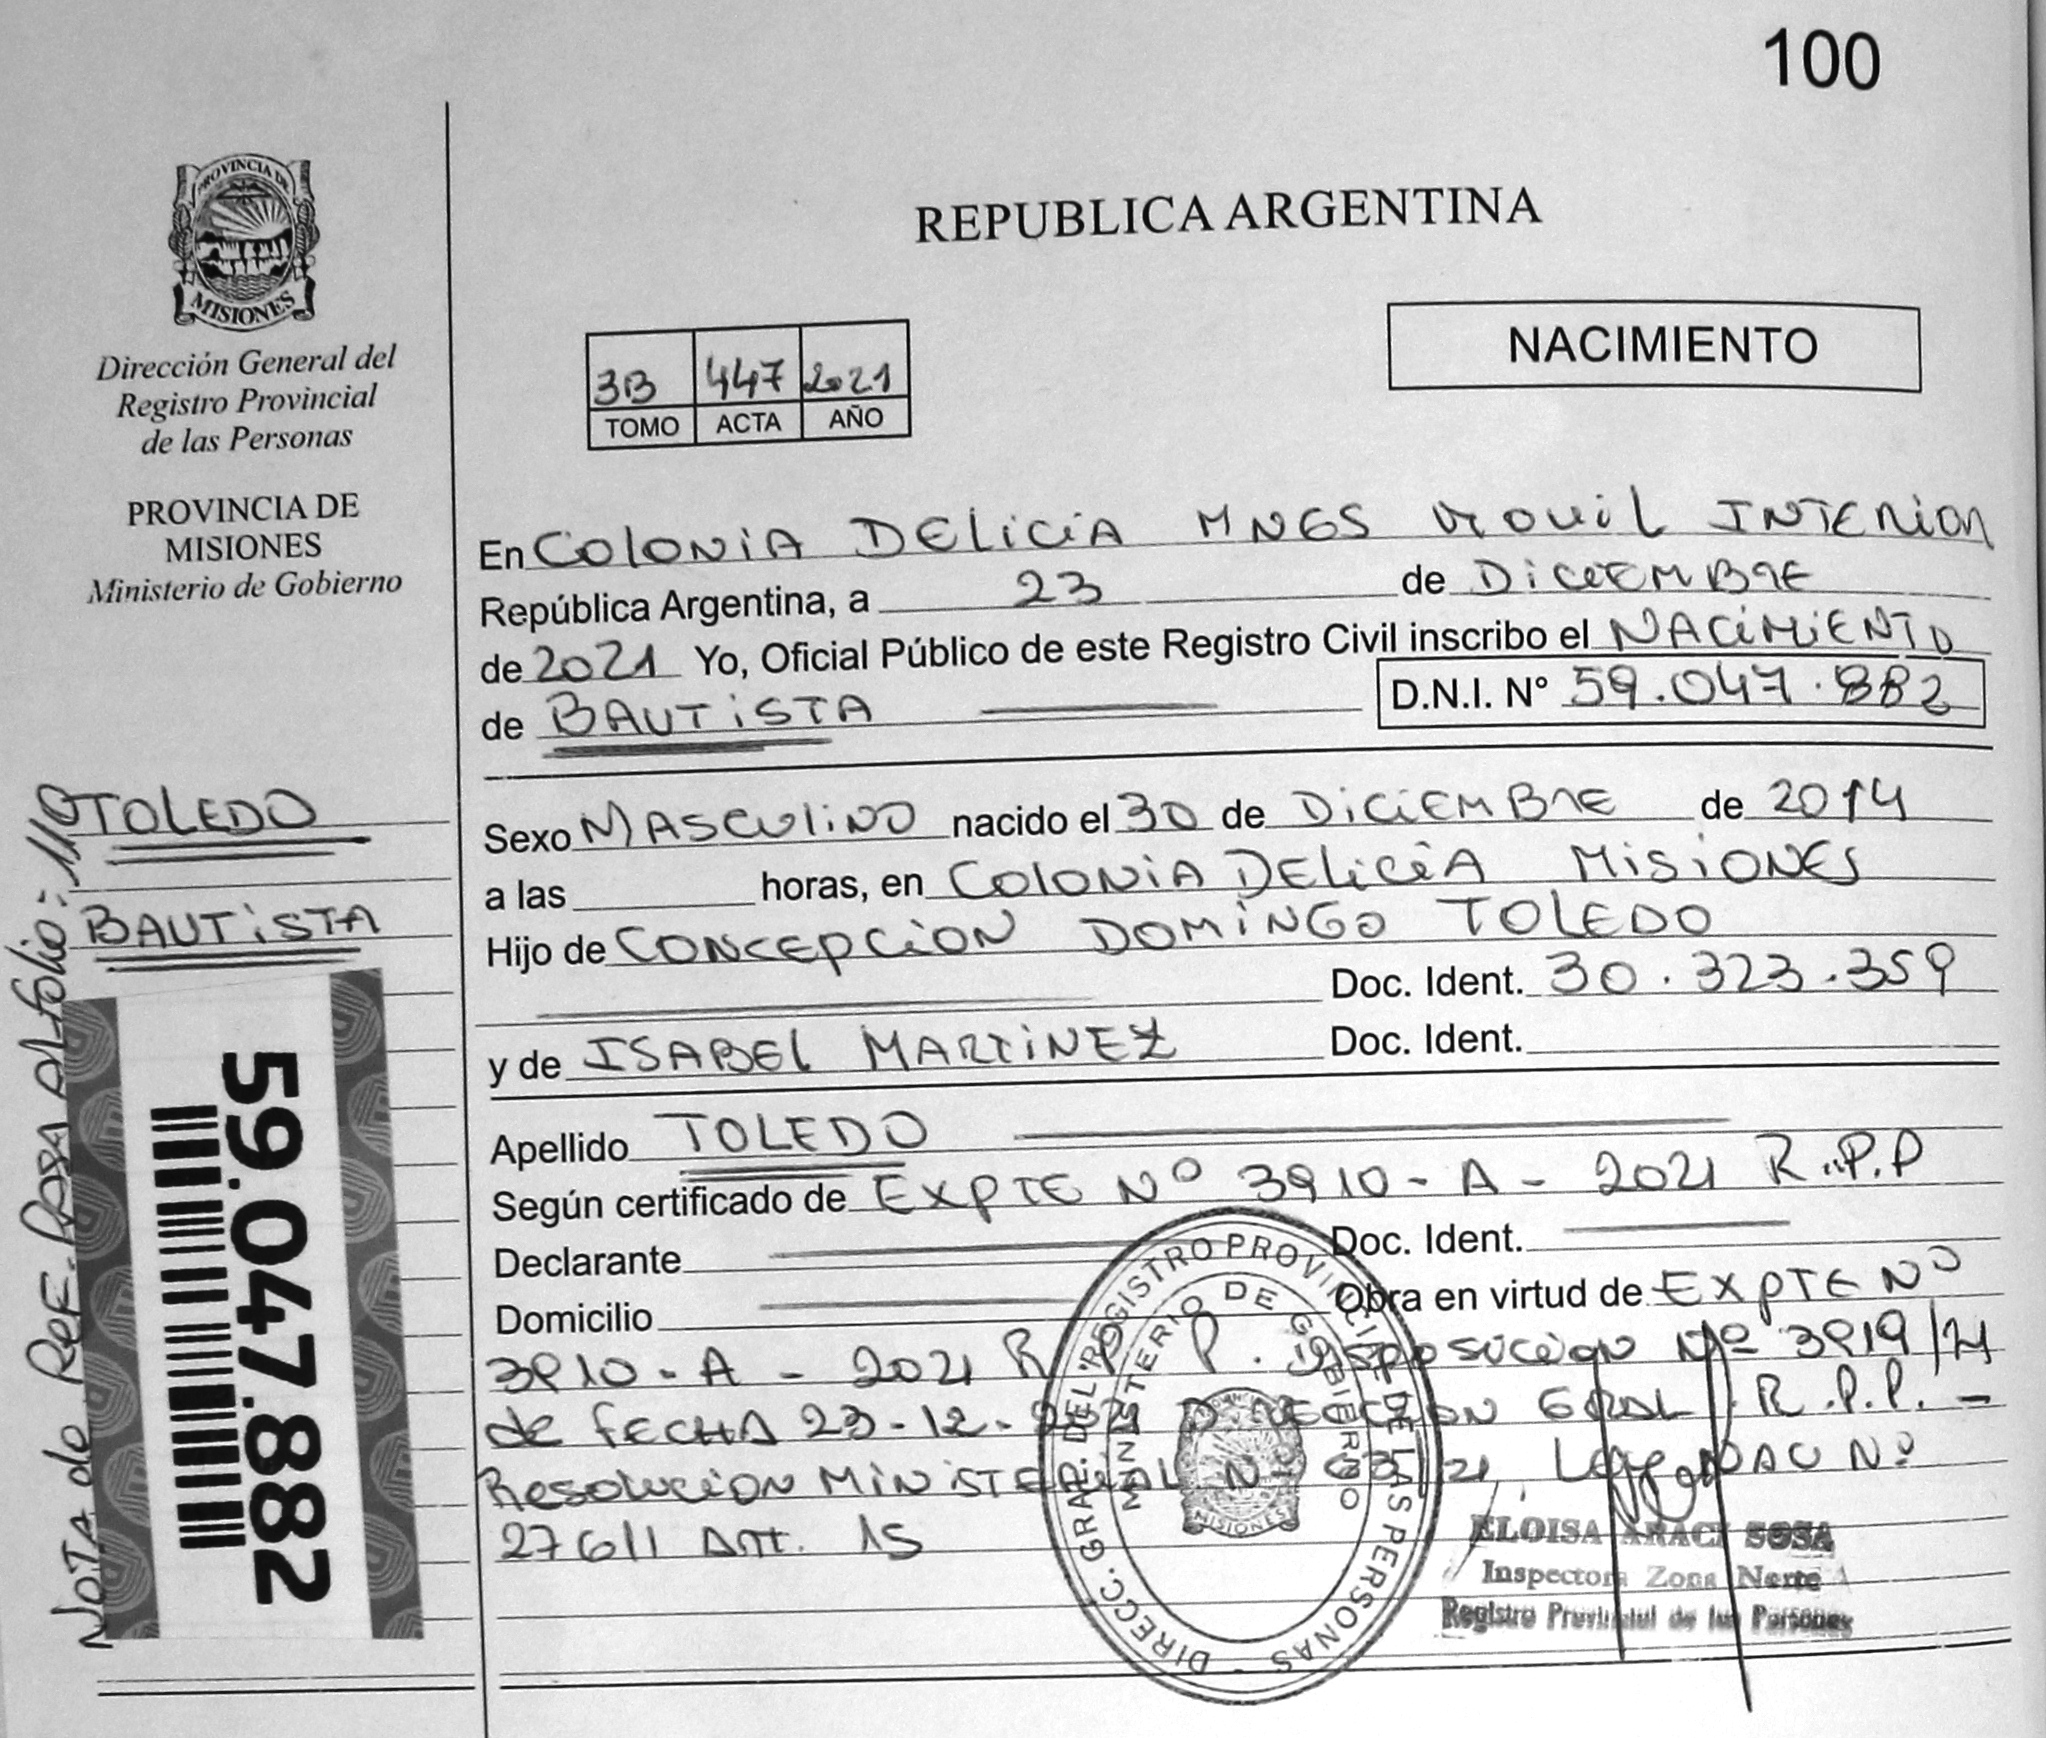 100
PROVINCIA DE
MISIONES
Dirección General del
Registro Provincial
de las Personas
PROVINCIA DE
MISIONES
Ministerio de Gobierno
REPUBLICA ARGENTINA
NACIMIENTO
3B 447 2021
TOMO ACTA AÑO
En COLONIA DELICIA MNES MOVIL INTERIOR
República Argentina, a 23 de DICIEMBRE
de 2021 Yo, Oficial Público de este Registro Civil inscribo el NACIMIENTO
de BAUTISTA D.N.I. N° 59.047.882
Sexo MASCULINO nacido el 30 de DICIEMBRE de 2014
a las horas, en COLONIA DELICIA MISIONES
Hijo de CONCEPCION DOMINGO TOLEDO
Doc. Ident. 30.323.359
y de ISABEL MARTINEZ Doc. Ident.
Apellido TOLEDO
Según certificado de EXPTE Nº 3910-A-2021 R.P.P
Declarante Doc. Ident.
Domicilio Obra en virtud de EXPTE Nº
3910-A-2021 R.P.P. Disposición Nº 3919/21
de FECHA 23-12-2021 DIRECCION GRAL R.P.P.-
Resolución MINISTERIAL Nº 63/21 Ley NAC Nº
27611 Art. 15
TOLEDO
BAUTISTA
59.047.882
NOTA de REF. PASA Al folio: 110
DIRECC. GRAL. DEL REGISTRO PROVINCIAL DE LAS PERSONAS
MINISTERIO DE GOBIERNO
MISIONES
ELOISA ARACI SOSA
Inspectora Zona Norte
Registro Provincial de las Personas